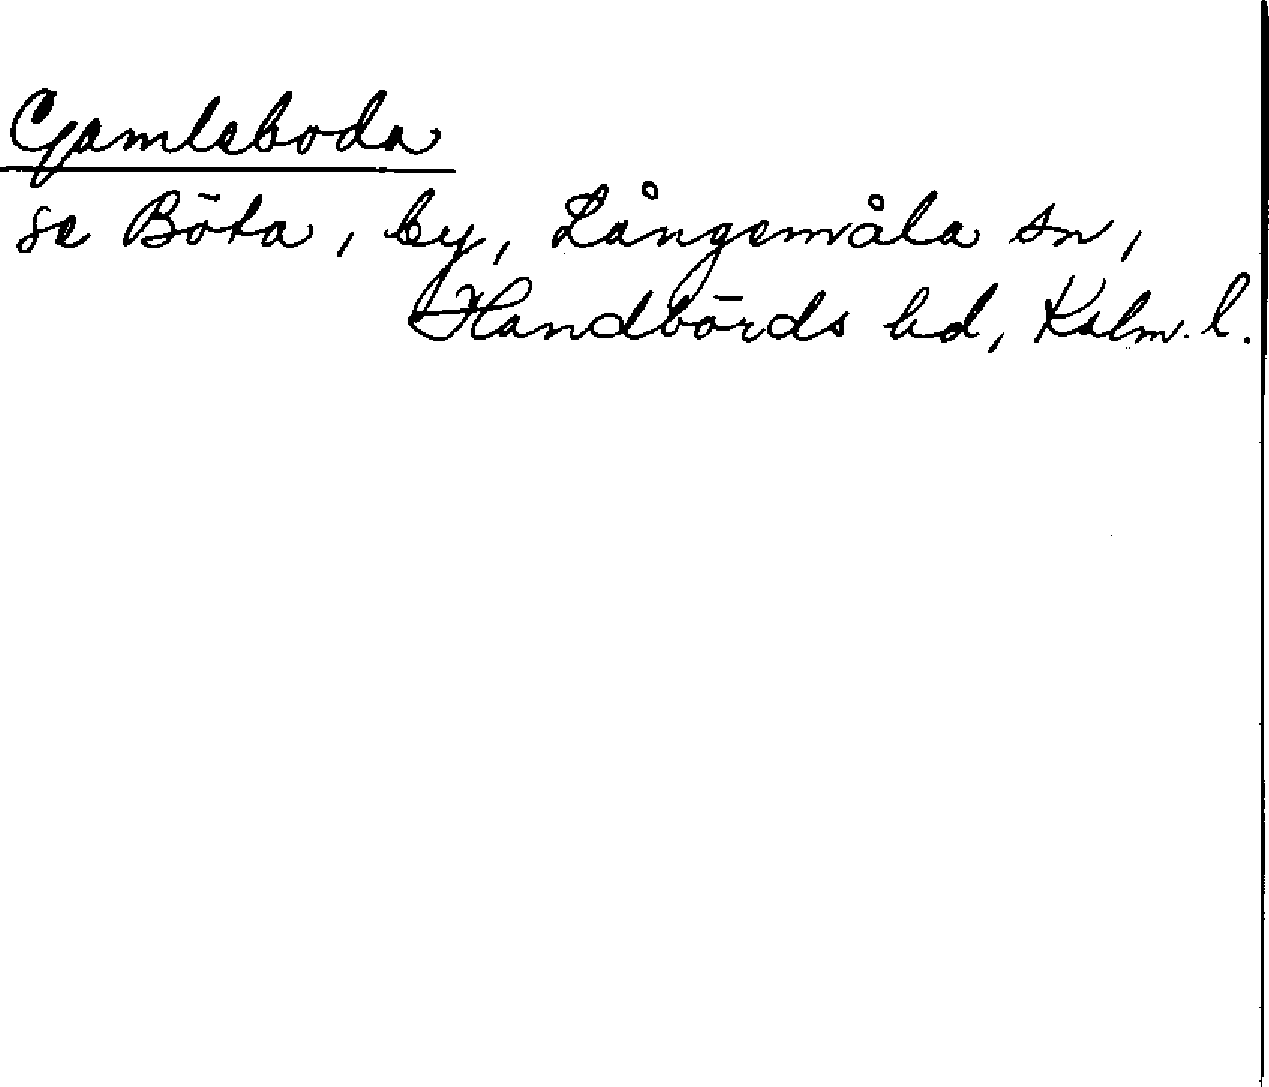 Gamleboda
se Böta, by, Långemåla sn,
Handbörds hd, Kalm. l.